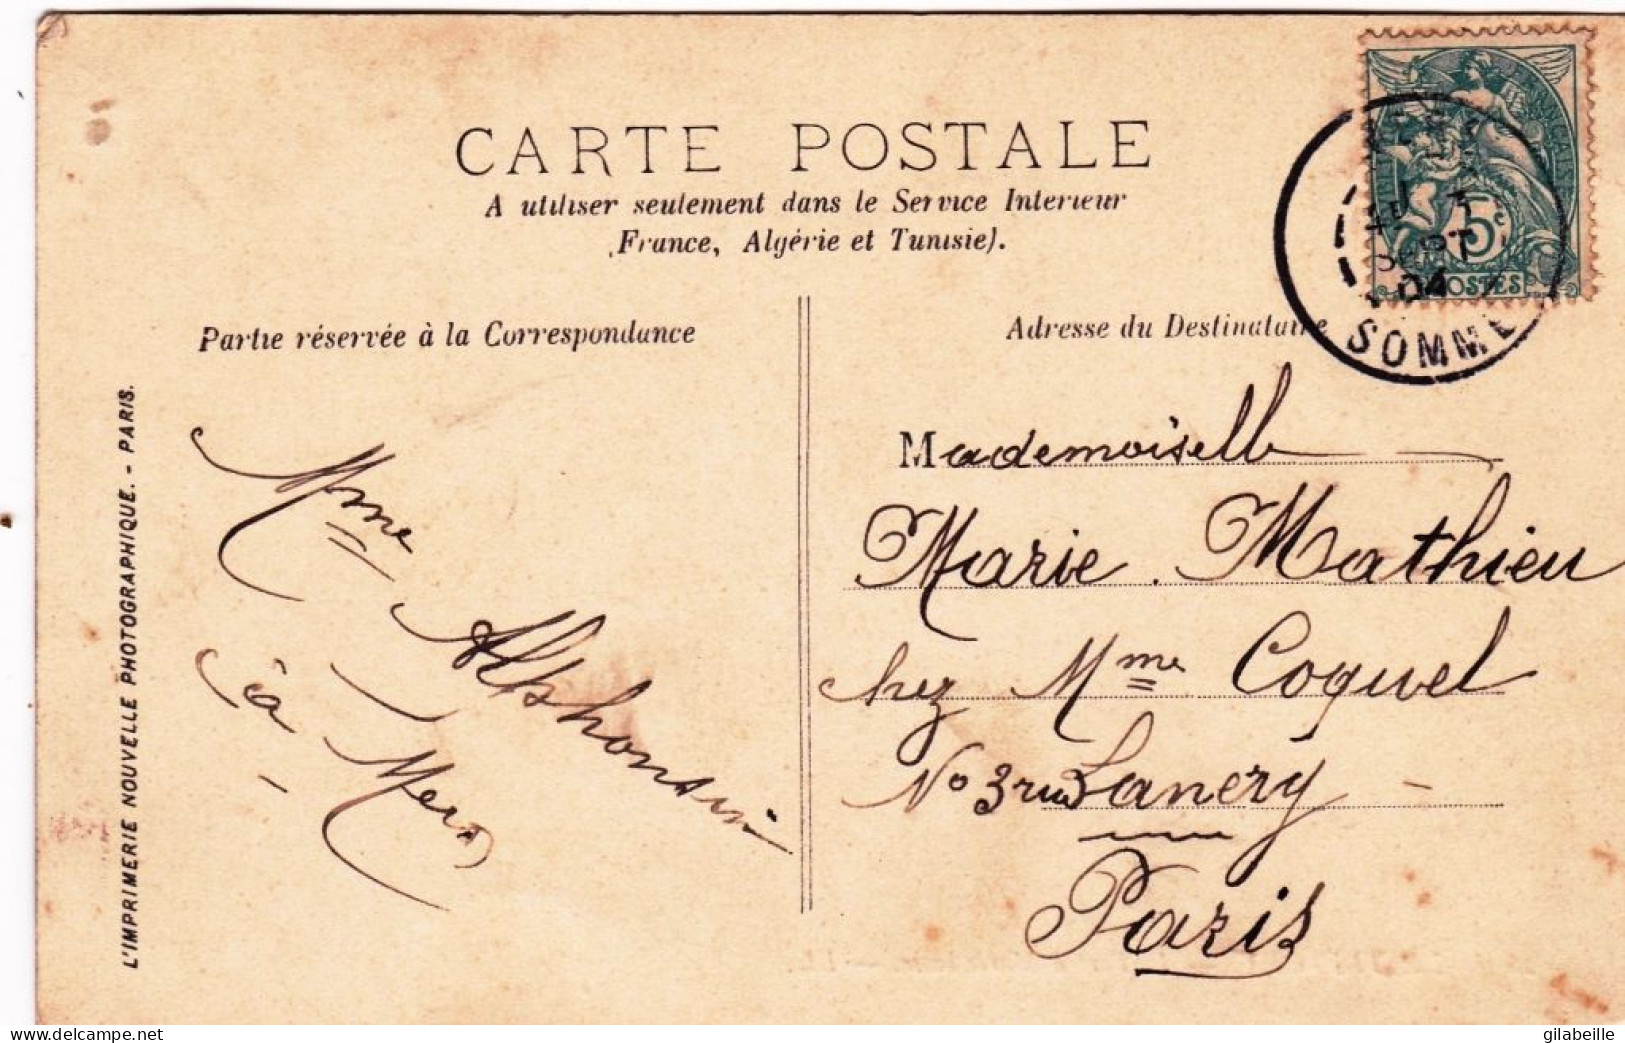 CARTE POSTALE
A utiliser seulement dans le Service Interieur
(France, Algérie et Tunisie).
Partie réservée à la Correspondance
Adresse du Destinataire
5c
POSTES
SEPT
04
SOMME
Mademoiselle
Marie Mathieu
chez Mme Coquel
No 3 rue Lancry
Paris
Mme
à Mers
L'IMPRIMERIE NOUVELLE PHOTOGRAPHIQUE. - PARIS.
www.delcampe.net
gilabeille